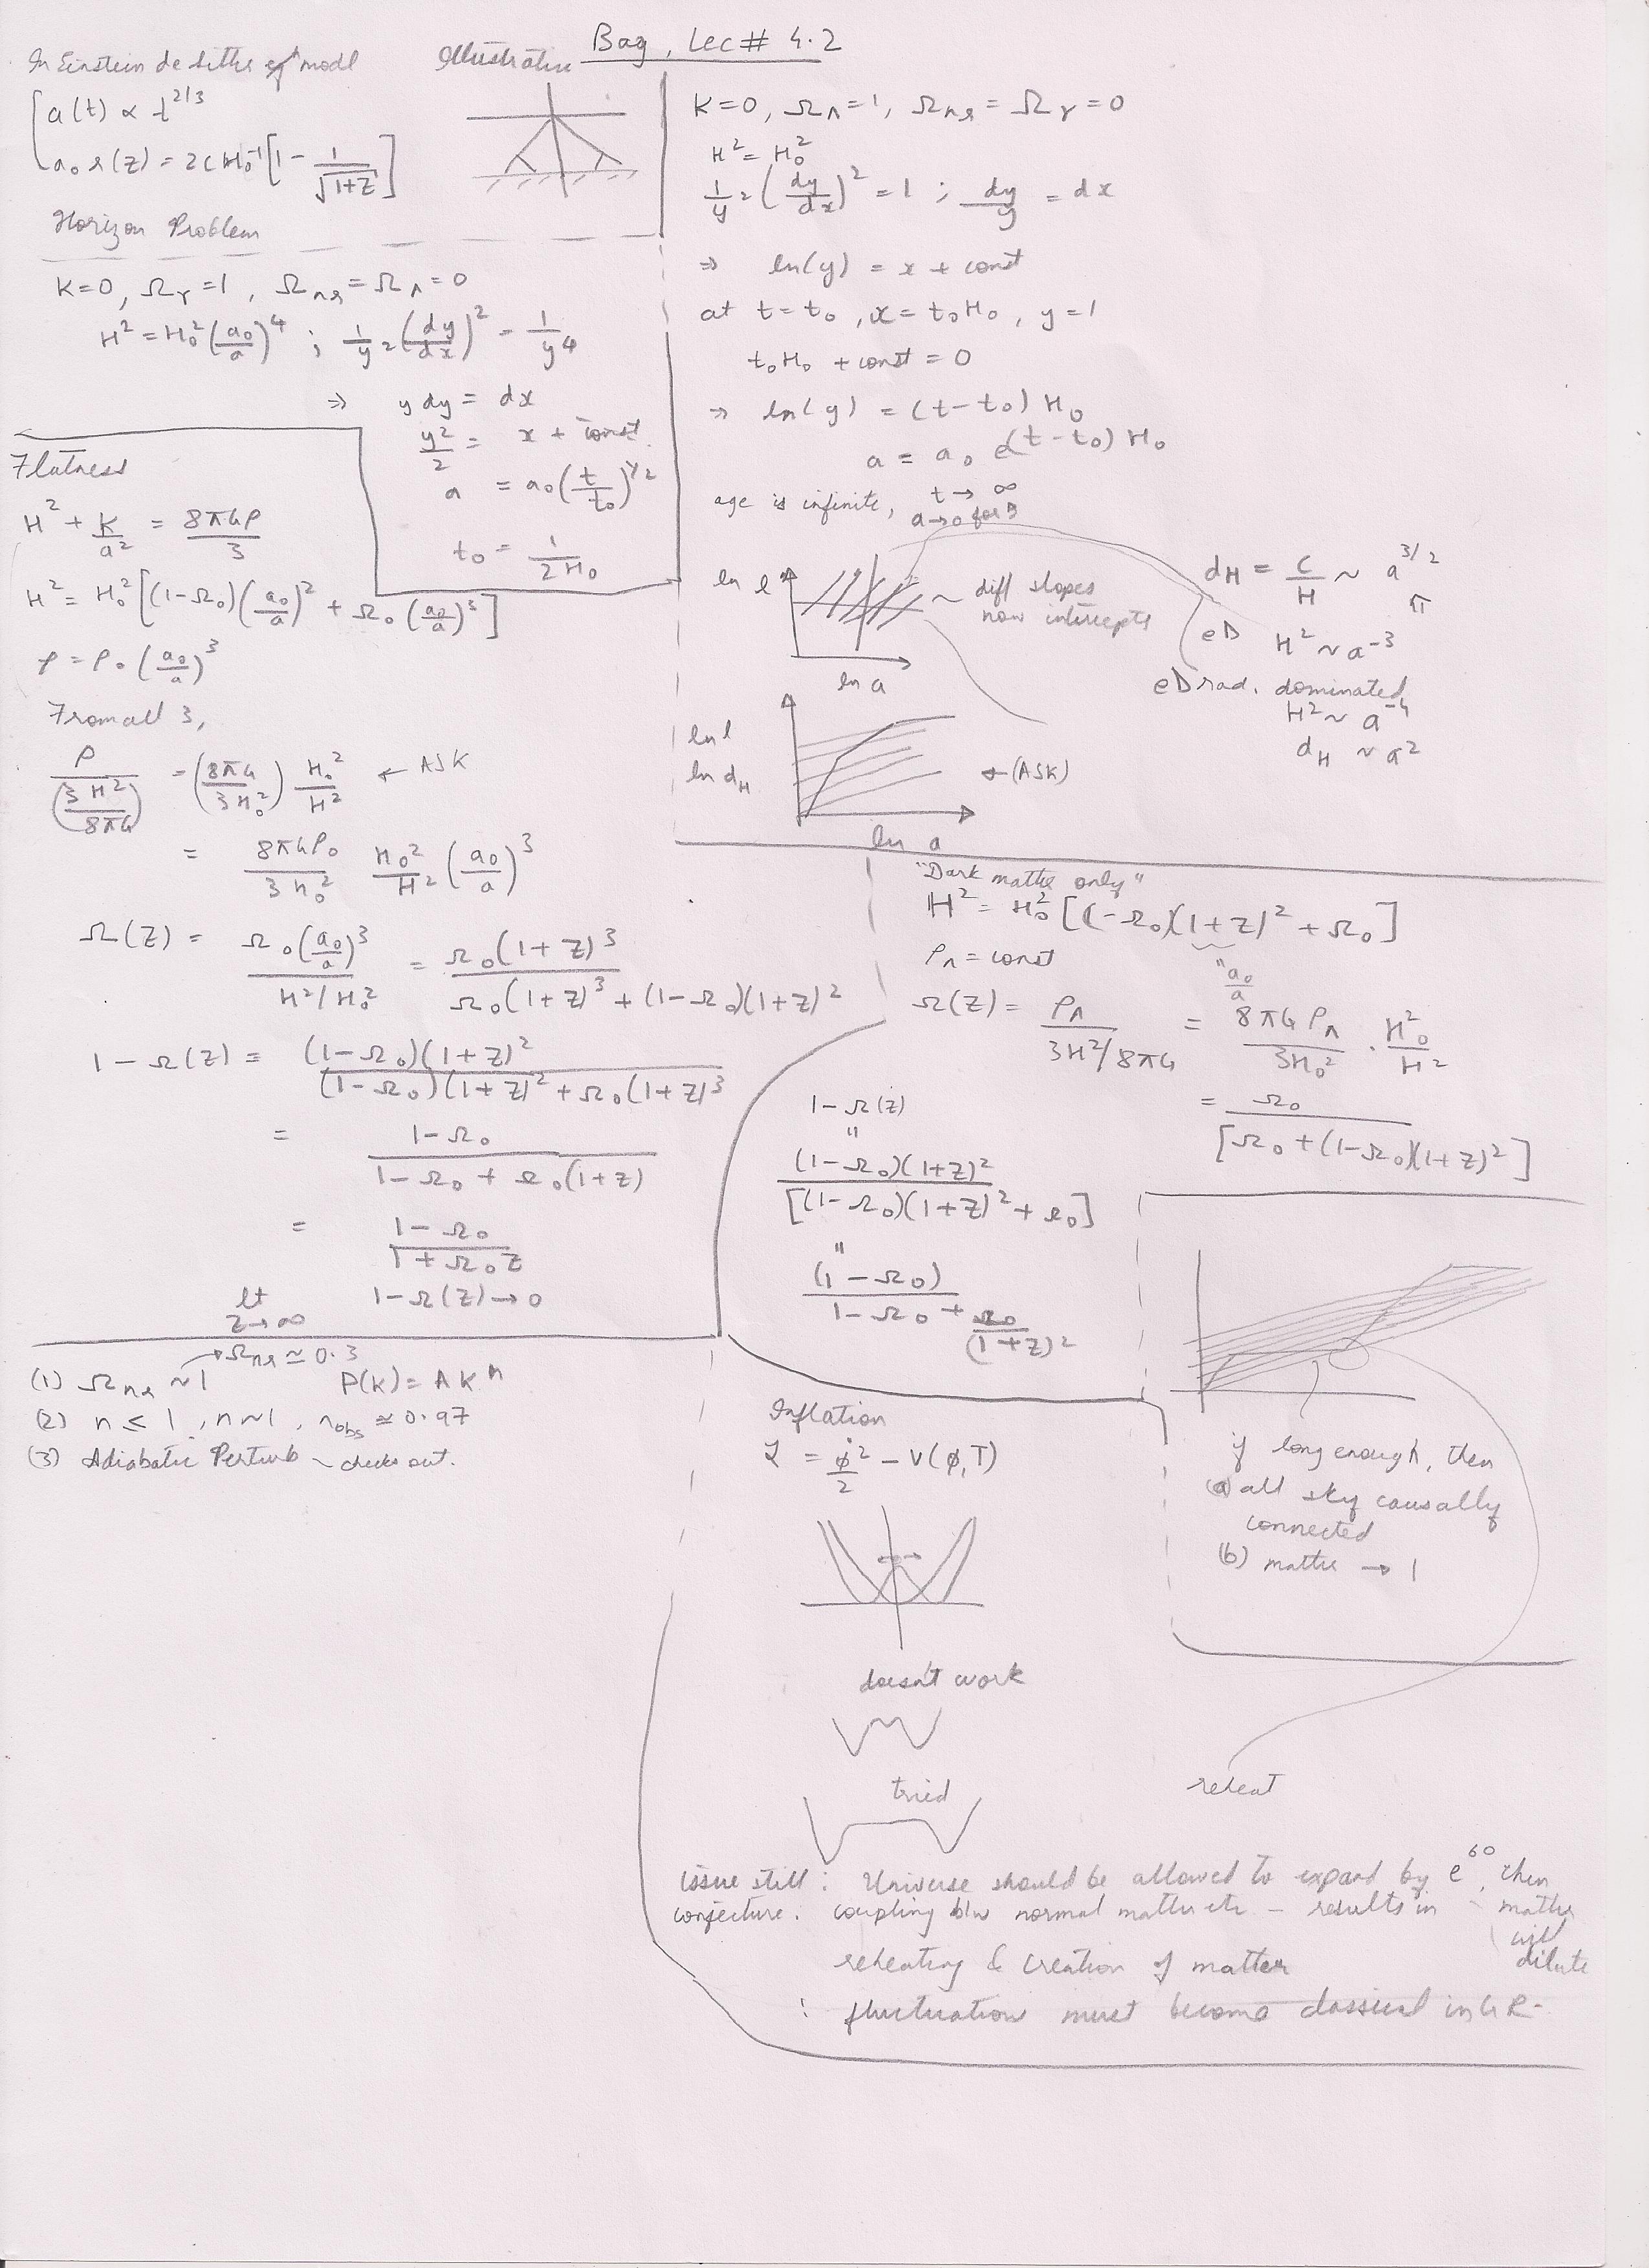 Bag, Lec# 4.2
In Einstein de model
Illustrative
a(t) ∝ t^{2/3}
a₀ r(z) = 2cH₀⁻¹[1 - 1/√(1+z)]
Horizon Problem
K=0, Ω_γ=1, Ω_nr=Ω_Λ=0
H² = H₀²(a₀/a)⁴ ; 1/y²(dy/dx)² = 1/y⁴
⇒ y dy = dx
y²/2 = x + const.
a = a₀(t/t₀)^{1/2}
t₀ = 1/2H₀
Flatness
H² + K/a² = 8πGρ/3
H² = H₀²[(1-Ω₀)(a₀/a)² + Ω₀(a₀/a)³]
ρ = ρ₀(a₀/a)³
From all 3,
ρ/(3H²/8πG) = (8πG/3H₀²) H₀²/H² ← ASK
= 8πGρ₀/3H₀² H₀²/H² (a₀/a)³
Ω(z) = Ω₀(a₀/a)³/(H²/H₀²) = Ω₀(1+z)³/(Ω₀(1+z)³+(1-Ω₀)(1+z)²)
1-Ω(z) = (1-Ω₀)(1+z)²/((1-Ω₀)(1+z)²+Ω₀(1+z)³)
= (1-Ω₀)/(1-Ω₀+Ω₀(1+z))
= (1-Ω₀)/(1+Ω₀z)
lt z→∞ 1-Ω(z)→0
→Ω_nr ≃ 0.3
(1) Ω_nr ~ 1 P(k) = A k^n
(2) n ≤ 1, n~1, n_obs ≃ 0.97
(3) Adiabatic Perturb ~ checks out.
K=0, Ω_Λ=1, Ω_nr=Ω_γ=0
H² = H₀²
1/y²(dy/dx)² = 1 ; dy/y = dx
⇒ ln(y) = x + const
at t=t₀, x=t₀H₀, y=1
t₀H₀ + const = 0
⇒ ln(y) = (t-t₀)H₀
a = a₀ e^{(t-t₀)H₀}
age is infinite, t→∞
a→0 for
ln l
ln a
~ diff slopes
now intercepts
d_H = c/H ~ a^{3/2}
eD H² ~ a⁻³
eD rad. dominated
H² ~ a⁻⁴
d_H ~ a²
ln l
ln d_H
←(ASK)
ln a
"Dark matte only"
H² = H₀²[(-Ω₀)(1+z)² + Ω₀]
ρ_Λ = const
" a₀/a
Ω(z) = ρ_Λ/(3H²/8πG) = 8πGρ_Λ/3H₀² · H₀²/H²
= Ω₀/[Ω₀+(1-Ω₀)(1+z)²]
1-Ω(z)
"
(1-Ω₀)(1+z)²/[(1-Ω₀)(1+z)²+Ω₀]
"
(1-Ω₀)/(1-Ω₀+Ω₀/(1+z)²)
if long enough, then
(a) all sky causally
connected
(b) matter → 1
reheat
Inflation
ℒ = φ̇²/2 - V(φ,T)
doesn't work
tried
issue still: Universe should be allowed to expand by e^{60}, then
matter
will
dilute
conjecture: coupling b/w normal matter etc - results in
reheating & creation of matter
: fluctuation must become classical in GR-